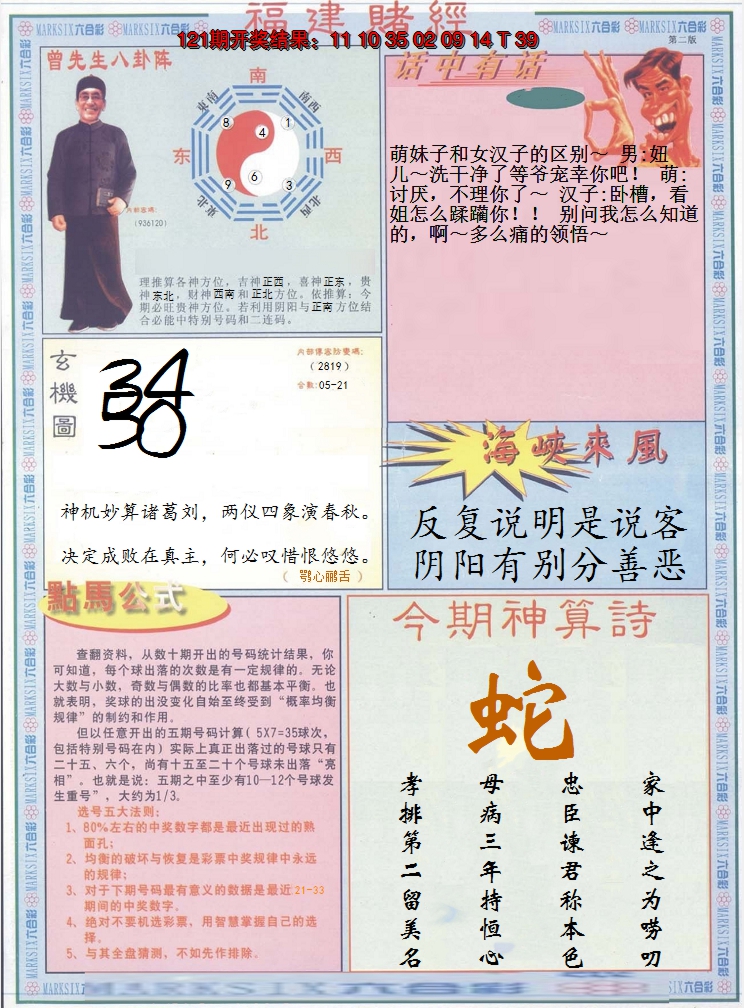 福建賭經
121期开奖结果：11 10 35 02 09 14 T 39
第二版
MARKSIX六合彩
曾先生八卦阵
南
東南
南西
东
西
東北
北西
北
8
4
1
9
6
3
内部密碼:
(936120)
理推算各神方位，吉神正西，喜神正东，贵
神东北，财神西南和正北方位。依推算：今
期必旺贵神方位。若利用阴阳与正南方位结
合必能中特别号码和二连码。
话中有话
萌妹子和女汉子的区别～ 男:妞
儿～洗干净了等爷宠幸你吧！ 萌:
讨厌，不理你了～ 汉子:卧槽，看
姐怎么蹂躏你！！ 别问我怎么知道
的，啊～多么痛的领悟～
玄機圖
内部傳密防變碼:
(2819)
合數:05-21
神机妙算诸葛刘，两仪四象演春秋。
决定成败在真主，何必叹惜恨悠悠。
（ 鹗心鹂舌 ）
海峽來風
反复说明是说客
阴阳有别分善恶
點馬公式
查翻资料，从数十期开出的号码统计结果，你
可知道，每个球出落的次数是有一定规律的。无论
大数与小数，奇数与偶数的比率也都基本平衡。也
就表明，奖球的出没变化自始至终受到“概率均衡
规律”的制约和作用。
但以任意开出的五期号码计算( 5X7=35球次，
包括特别号码在内) 实际上真正出落过的号球只有
二十五、六个，尚有十五至二十个号球未出落“亮
相”。也就是说：五期之中至少有10—12个号球发
生重号”，大约为1/3。
选号五大法则：
1、80%左右的中奖数字都是最近出现过的熟
面孔；
2、均衡的破坏与恢复是彩票中奖规律中永远
的规律；
3、对于下期号码最有意义的数据是最近21-33
期间的中奖数字。
4、绝对不要机选彩票，用智慧掌握自己的选
择。
5、与其全盘猜测，不如先作排除。
今期神算詩
蛇
家中逢之为唠叨
忠臣谏君称本色
母病三年持恒心
孝排第二留美名